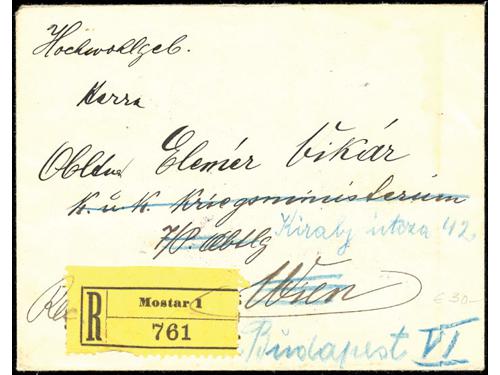 Hochwohlgeb.
Herrn
Obltnt Elemér Vikár
k. u. k. Kriegsministerium
7/P. Abtlg Király utcza 42.
Wien
€ 30-
R Mostar 1
761
Budapest VI